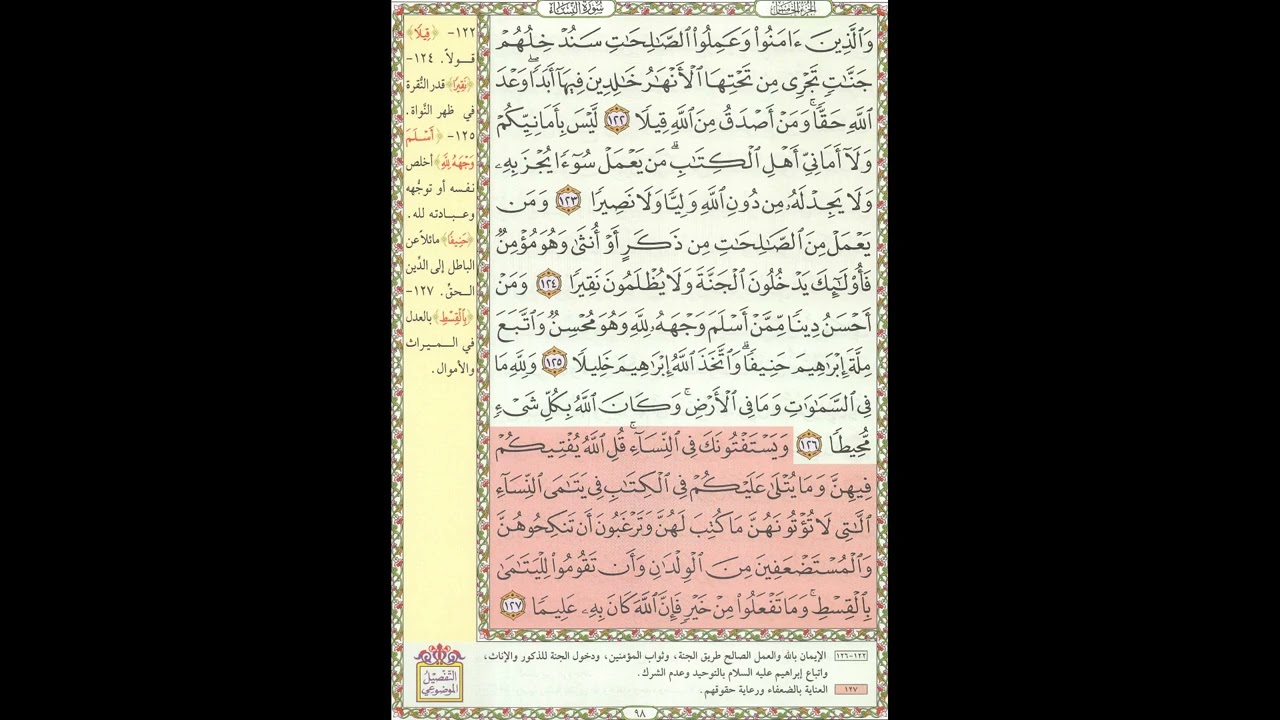 الجزء الخامس
سورة النساء
وَالَّذِينَ ءَامَنُوا۟ وَعَمِلُوا۟ الصَّٰلِحَٰتِ سَنُدْخِلُهُمْ
جَنَّٰتٍ تَجْرِى مِن تَحْتِهَا الْأَنْهَٰرُ خَٰلِدِينَ فِيهَآ أَبَدًا ۖ وَعْدَ
اللَّهِ حَقًّا ۚ وَمَنْ أَصْدَقُ مِنَ اللَّهِ قِيلًا ١٢٢ لَّيْسَ بِأَمَانِيِّكُمْ
وَلَآ أَمَانِىِّ أَهْلِ الْكِتَٰبِ ۗ مَن يَعْمَلْ سُوٓءًا يُجْزَ بِهِۦ
وَلَا يَجِدْ لَهُۥ مِن دُونِ اللَّهِ وَلِيًّا وَلَا نَصِيرًا ١٢٣ وَمَن
يَعْمَلْ مِنَ الصَّٰلِحَٰتِ مِن ذَكَرٍ أَوْ أُنثَىٰ وَهُوَ مُؤْمِنٌ
فَأُو۟لَٰٓئِكَ يَدْخُلُونَ الْجَنَّةَ وَلَا يُظْلَمُونَ نَقِيرًا ١٢٤ وَمَنْ
أَحْسَنُ دِينًا مِّمَّنْ أَسْلَمَ وَجْهَهُۥ لِلَّهِ وَهُوَ مُحْسِنٌ وَاتَّبَعَ
مِلَّةَ إِبْرَٰهِيمَ حَنِيفًا ۗ وَاتَّخَذَ اللَّهُ إِبْرَٰهِيمَ خَلِيلًا ١٢٥ وَلِلَّهِ مَا
فِى السَّمَٰوَٰتِ وَمَا فِى الْأَرْضِ ۚ وَكَانَ اللَّهُ بِكُلِّ شَىْءٍ
مُّحِيطًا ١٢٦ وَيَسْتَفْتُونَكَ فِى النِّسَآءِ ۖ قُلِ اللَّهُ يُفْتِيكُمْ
فِيهِنَّ وَمَا يُتْلَىٰ عَلَيْكُمْ فِى الْكِتَٰبِ فِى يَتَٰمَى النِّسَآءِ
الَّٰتِى لَا تُؤْتُونَهُنَّ مَا كُتِبَ لَهُنَّ وَتَرْغَبُونَ أَن تَنكِحُوهُنَّ
وَالْمُسْتَضْعَفِينَ مِنَ الْوِلْدَٰنِ وَأَن تَقُومُوا۟ لِلْيَتَٰمَىٰ
بِالْقِسْطِ ۚ وَمَا تَفْعَلُوا۟ مِنْ خَيْرٍ فَإِنَّ اللَّهَ كَانَ بِهِۦ عَلِيمًا ١٢٧
١٢٢- ﴿قِيلًا﴾
قولاً. ١٢٤-
﴿نَقِيرًا﴾ قدر النُّقرة
في ظهر النَّواة.
١٢٥- ﴿أَسْلَمَ
وَجْهَهُ لِلَّهِ﴾ أخلص
نفسه أو توجُّهه
وعبادته لله.
﴿حَنِيفًا﴾ مائلاً عن
الباطل إلى الدِّين
الحقِّ. ١٢٧-
﴿بِالْقِسْطِ﴾ بالعدل
في الميراث
والأموال.
١٢٢-١٢٦ الإيمان بالله والعمل الصالح طريق الجنة، وثواب المؤمنين، ودخول الجنة للذكور والإناث،
واتباع إبراهيم عليه السلام بالتوحيد وعدم الشرك.
١٢٧ العناية بالضعفاء ورعاية حقوقهم.
التفصيل
الموضوعي
٩٨